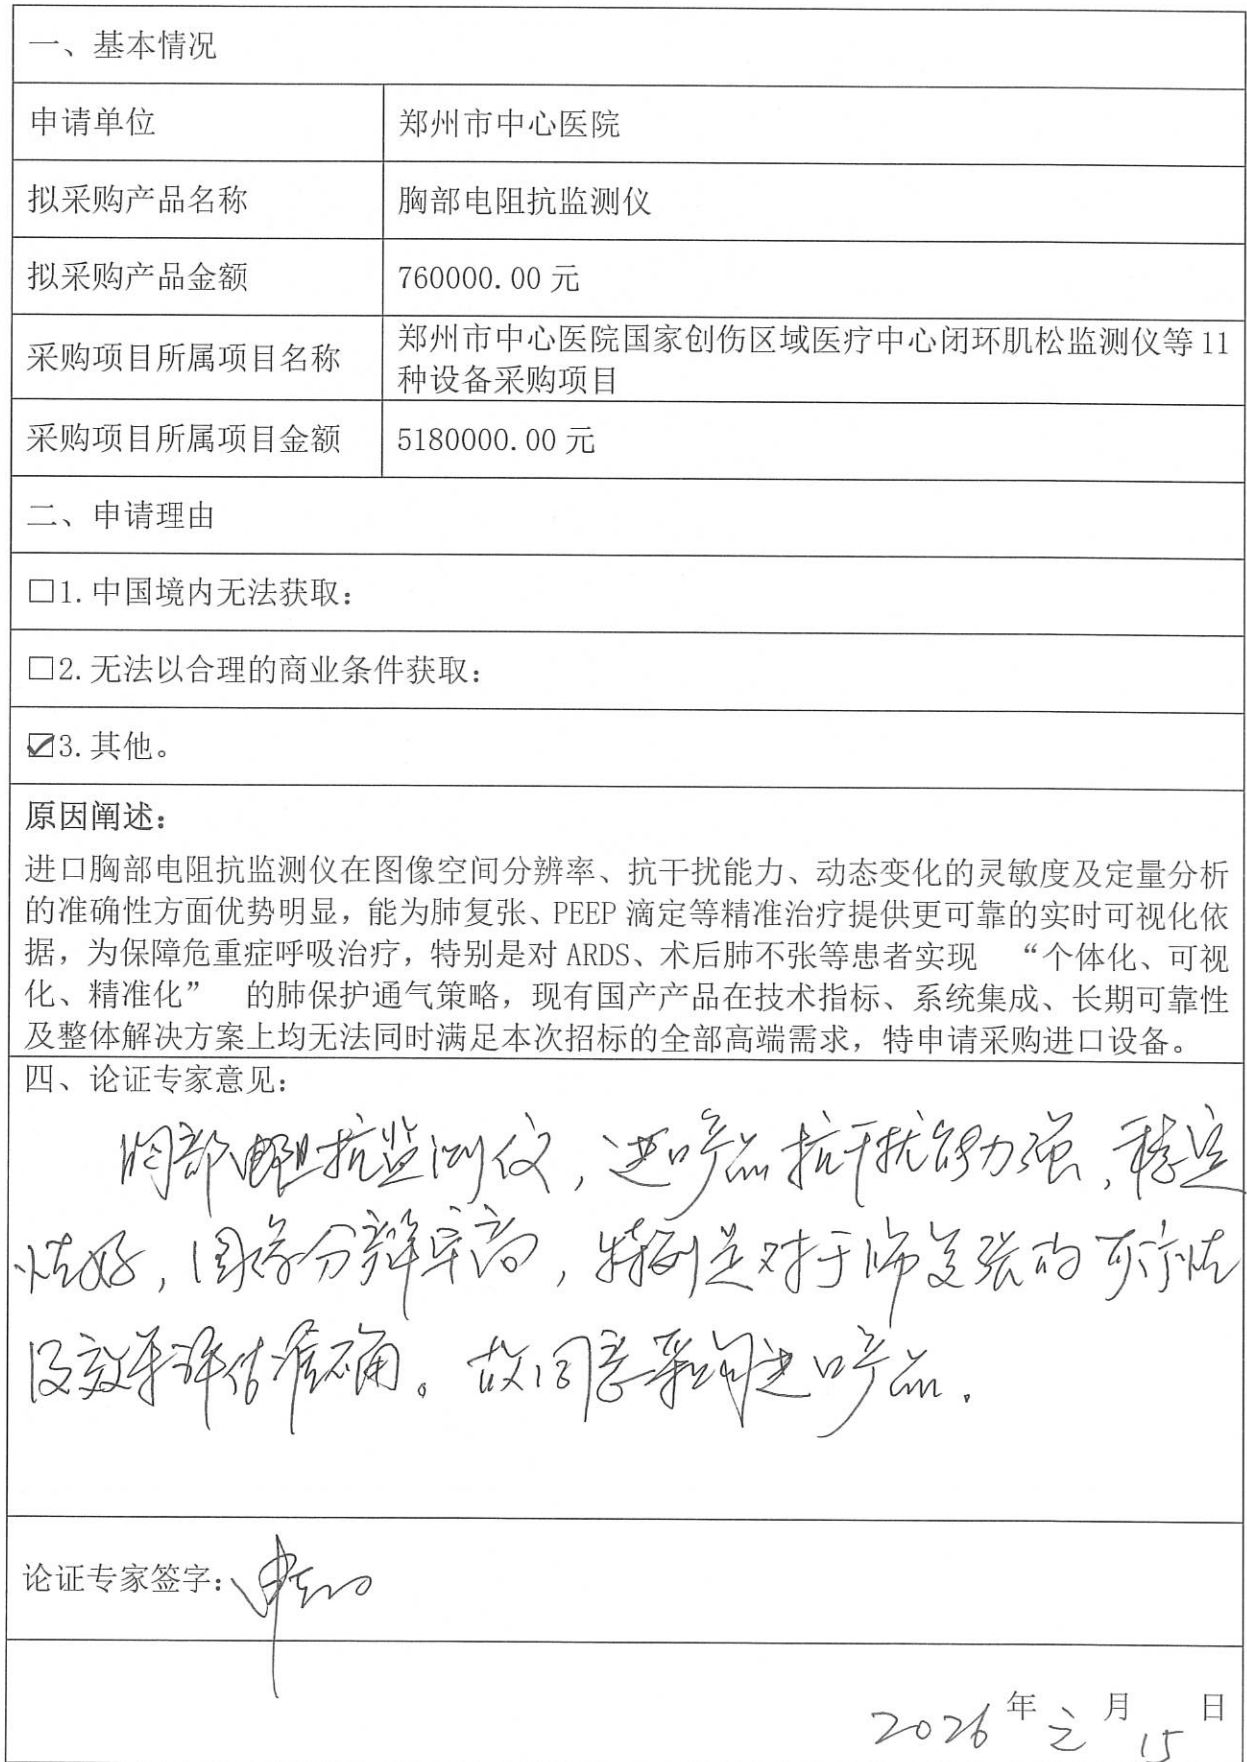 一、基本情况
申请单位 郑州市中心医院
拟采购产品名称 胸部电阻抗监测仪
拟采购产品金额 760000.00 元
采购项目所属项目名称 郑州市中心医院国家创伤区域医疗中心闭环肌松监测仪等 11
种设备采购项目
采购项目所属项目金额 5180000.00 元
二、申请理由
□1.中国境内无法获取：
□2.无法以合理的商业条件获取：
☑3.其他。
原因阐述：
进口胸部电阻抗监测仪在图像空间分辨率、抗干扰能力、动态变化的灵敏度及定量分析
的准确性方面优势明显，能为肺复张、PEEP 滴定等精准治疗提供更可靠的实时可视化依
据，为保障危重症呼吸治疗，特别是对 ARDS、术后肺不张等患者实现 “个体化、可视
化、精准化” 的肺保护通气策略，现有国产产品在技术指标、系统集成、长期可靠性
及整体解决方案上均无法同时满足本次招标的全部高端需求，特申请采购进口设备。
四、论证专家意见：
胸部电阻抗监测仪，进口产品抗干扰能力强，稳定
性好，图像分辩率高，特别是对于肺复张的可行性
及效果评估准确。故同意采购进口产品.
论证专家签字：
2026 年 元 月 15 日